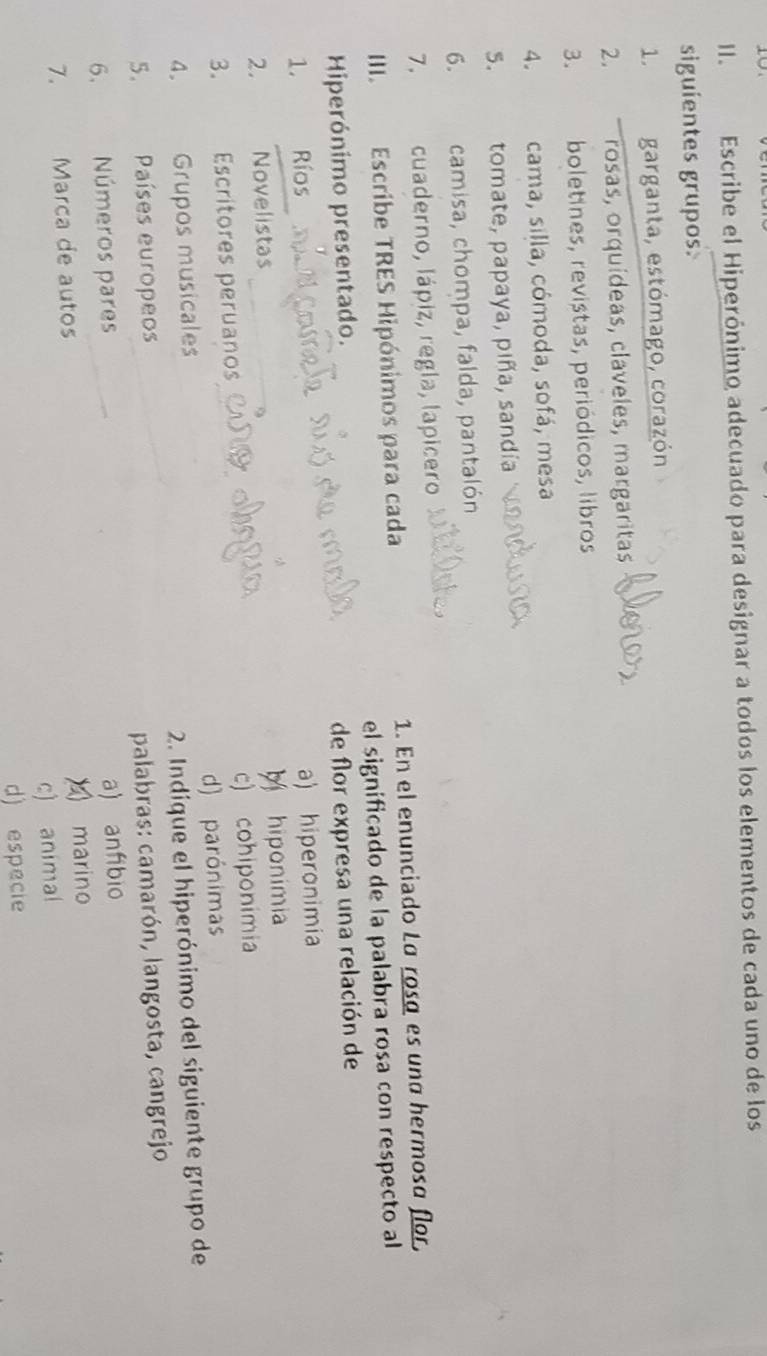 10.
II. Escribe el Hiperónimo adecuado para designar a todos los elementos de cada uno de los
siguientes grupos:
1. garganta, estómago, corazón
2. rosas, orquídeas, claveles, margaritas
3. boletines, revistas, periódicos, libros
4. cama, silla, cómoda, sofá, mesa
5. tomate, papaya, piña, sandía
6. camisa, chompa, falda, pantalón
7. cuaderno, lápiz, regla, lapicero
III. Escribe TRES Hipónimos para cada
Hiperónimo presentado.
1. Ríos
2. Novelistas
3. Escritores peruanos
4. Grupos musicales
5. Países europeos
6. Números pares
7. Marca de autos
1. En el enunciado La rosa es una hermosa flor,
el significado de la palabra rosa con respecto al
de flor expresa una relación de
a) hiperonimia
b) hiponimia
c) cohiponimia
d) parónimas
2. Indique el hiperónimo del siguiente grupo de
palabras: camarón, langosta, cangrejo
a) anfibio
marino
c) animal
d) especie